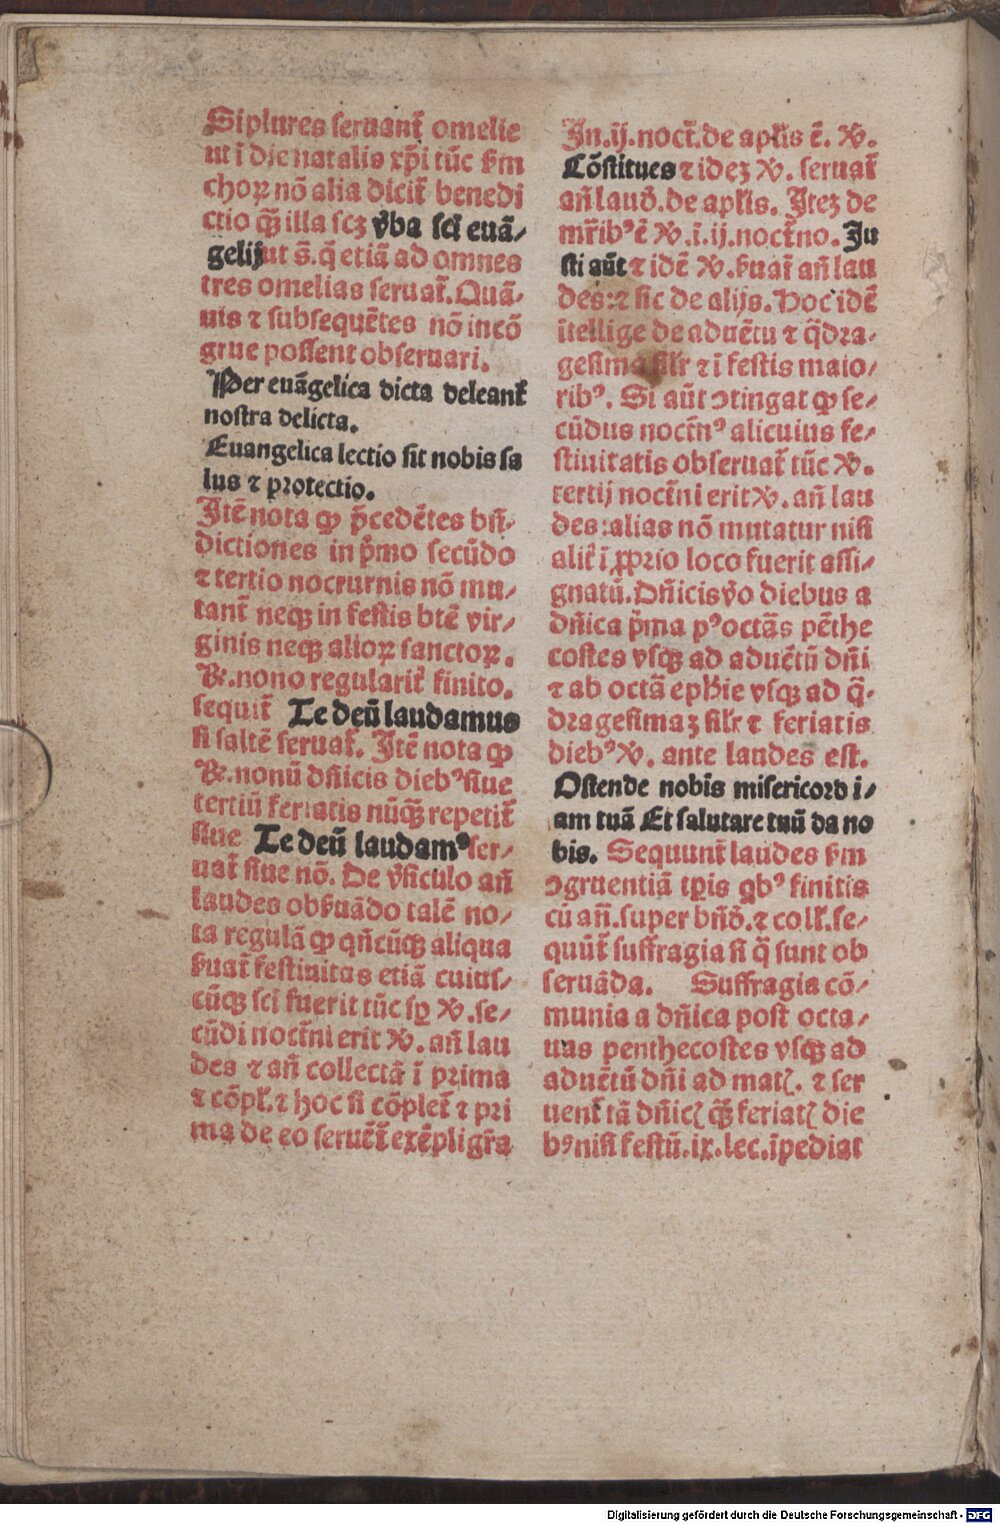 Siplures seruant᷑ omelie
ut ĩ die natalis xp̃i tũc ẜm
choꝝ nõ alia dicit᷑ benedi
ctio q̃ꝫ illa scꝫ v̉ba sci euã⸗
gelij ut s̃. q̃ etiã ad omnes
tres omelias seruat᷑. Quã⸗
uis ⁊ subsequẽtes nõ incõ
grue possent obseruari.
Per euãgelica dicta deleant᷑
nostra delicta.
Euangelica lectio sit nobis sa
lus ⁊ protectio.
Itẽ nota ꝙ p̃cedẽtes bñ⸗
dictiones in p̃mo secũdo
⁊ tertio nocturnis nõ mu⸗
tant᷑ neqꝫ in festis btẽ vir⸗
ginis neqꝫ alioꝝ sanctoꝝ.
℟. nono regularit᷑ finito.
sequit᷑ Te deũ laudamus
si saltẽ seruat᷑. Itẽ nota ꝙ
℟. nonũ dñicis diebꝰ siue
tertiũ feriatis nũq̃ꝫ repetit᷑
siue Te deũ laudamꝰ ser⸗
uat᷑ siue nõ. De v̉siculo añ
laudes obẜuãdo talẽ no⸗
ta regulã ꝙ qñcũqꝫ aliqua
ẜuat᷑ festiuitas etiã cuius⸗
cũqꝫ sci fuerit tũc sꝑ ℣. se⸗
cũdi noct᷑ni erit ℣. añ lau
des ⁊ añ collectã ĩ prima
⁊ cõpl᷑. ⁊ hoc si cõplet᷑ ⁊ pri
ma de eo seruẽt᷑ exẽpli gr̃a
In .ij. noct᷑. de apl̃is ẽ. ℣.
Cõstitues ⁊ ideꝫ ℣. seruat᷑
añ laud̃. de apl̃is. Iteꝫ de
mr̃ibꝰ ẽ ℣. ĩ .ij. noct᷑no. Iu
sti aũt ⁊ idẽ ℣. ẜuat᷑ añ lau
des: ⁊ sic de alijs. Hoc idẽ
ĩtellige de aduẽtu ⁊ q̃dra⸗
gesima sil̃r ⁊ ĩ festis maio⸗
ribꝰ. Si aũt ↄtingat ꝙ se⸗
cũdus noct᷑nꝰ alicuius fe⸗
stiuitatis obseruat᷑ tũc ℣.
tertij noct᷑ni erit ℣. añ lau
des: alias nõ mutatur nisi
alit᷑ ĩ ꝓprio loco fuerit assi⸗
gnatũ. Dñicis v̉o diebus a
dñica p̃ma pꝰ octãs pẽthe
costes vsqꝫ ad aduẽtũ dñi
⁊ ab octã epħie vsqꝫ ad q̃⸗
dragesimaꝫ sil̃r ⁊ feriatis
diebꝰ ℣. ante laudes est.
Ostende nobis misericordi⸗
am tuã Et salutare tuũ da no
bis. Sequunt᷑ laudes ẜm
ↄgruentiã tꝑis qͥbꝰ finitis
cũ añ. super bñd̃. ⁊ coll᷑. se⸗
quũt᷑ suffragia si q̃ sunt ob
seruãda. Suffragia cõ⸗
munia a dñica post octa⸗
uas penthecostes vsqꝫ ad
aduẽtũ dñi ad matꝭ. ⁊ ser
uent᷑ tã dñicꝭ q̃ꝫ feriatꝭ die
bꝰ nisi festũ .ix. lec. ĩpediat
Digitalisierung gefördert durch die Deutsche Forschungsgemeinschaft - DFG